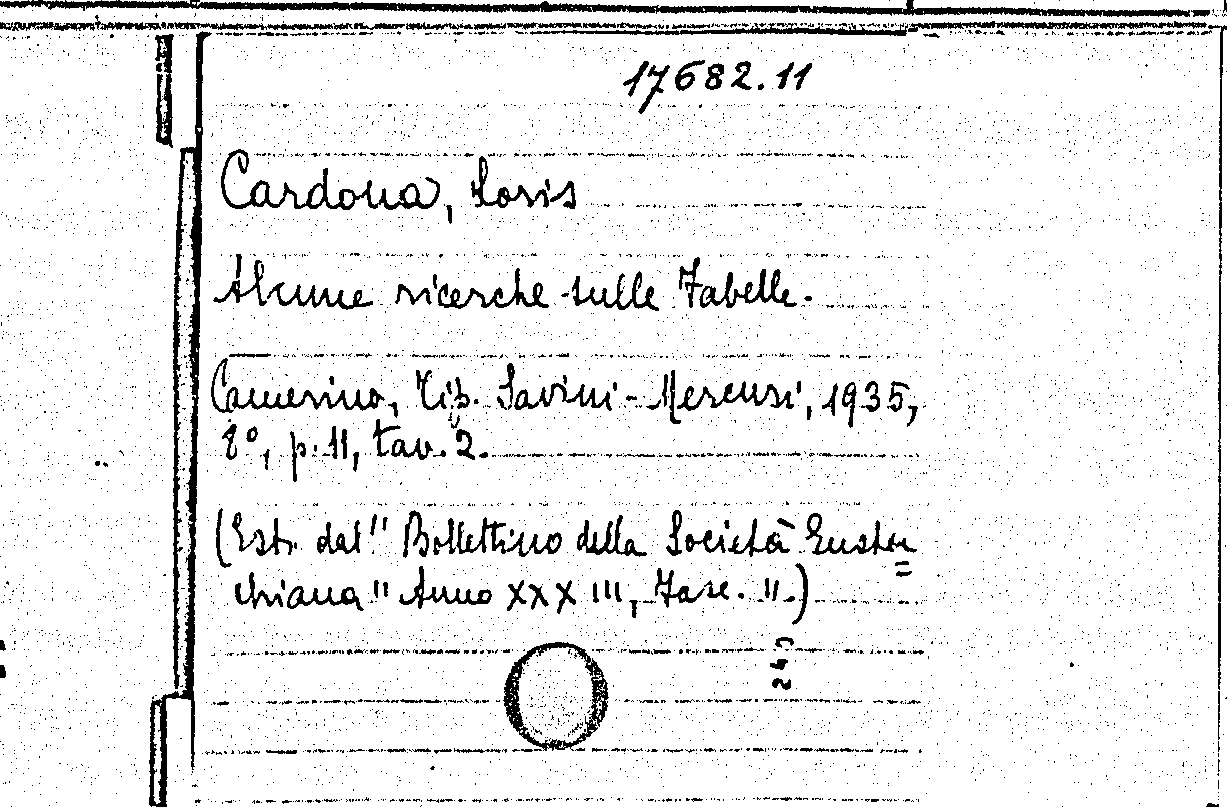 17682.11
Cardona, Loris
Alcune ricerche sulle Tabelle.
Camerino, Tip. Savini-Mercuri, 1935,
8°, p. 11, tav. 2.
(Estr. dal "Bollettino della Società Eusta=
chiana" Anno XXXIII, Fasc. II.)